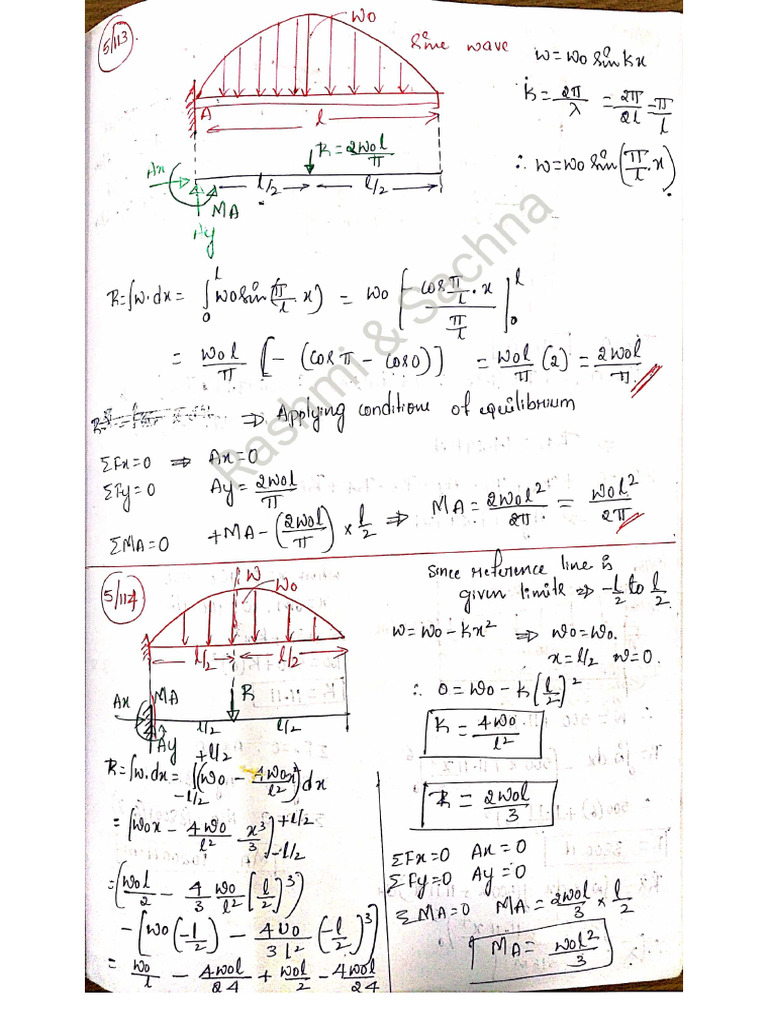 5/113.
w₀
sine wave
w = w₀ sin kx
K = 2π/λ = 2π/2l = π/l
∴ w = w₀ sin(π/l · x)
A
l
R = 2w₀l/π
Ax
l/2
l/2
MA
Ay
R = ∫w·dx = ∫₀ˡ w₀ sin(π/l · x) = w₀ [- cos π/l · x / π/l]₀ˡ
= w₀l/π [-(cos π - cos 0)] = w₀l/π (2) = 2w₀l/π
⇒ Applying conditions of equilibrium
ΣFx=0 ⇒ Ax=0
ΣFy=0 Ay = 2w₀l/π
ΣMA=0 +MA - (2w₀l/π) × l/2 ⇒ MA = 2w₀l²/2π = w₀l²/2π
Rashmi & Sachna
5/114
w
w₀
l/2
l/2
Since reference line is
given limits ⇒ -l/2 to l/2
w = w₀ - kx² ⇒ w₀=w₀.
x=l/2 w=0.
∴ 0 = w₀ - k(l/2)²
K = 4w₀/l²
Ax
MA
R
Ay
l/2
l/2
R = ∫w·dx = ∫₋l/₂⁺l/² (w₀ - 4w₀x²/l²) dx
= [w₀x - 4w₀/l² x³/3]₋l/₂⁺l/²
= (w₀l/2 - 4/3 w₀/l² [l/2]³)
- [w₀(-l/2) - 4w₀/3l² (-l/2)³]
= w₀/l - 4w₀l/24 + w₀l/2 - 4w₀l/24
R = 2w₀l/3
ΣFx=0 Ax=0
ΣFy=0 Ay=0
ΣMA=0 MA = 2w₀l/3 × l/2
MA = w₀l²/3